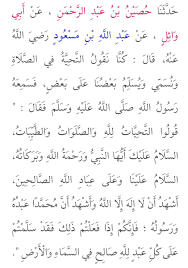 حَدَّثَنَا حُصَيْنُ بْنُ عَبْدِ الرَّحْمَنِ ، عَنْ أَبِي
وَائِلٍ ، عَنْ عَبْدِ اللَّهِ بْنِ مَسْعُودٍ رَضِيَ اللَّهُ
عَنْهُ، قَالَ : كُنَّا نَقُولُ التَّحِيَّةُ فِي الصَّلَاةِ
وَنُسَمِّي وَيُسَلِّمُ بَعْضُنَا عَلَى بَعْضٍ، فَسَمِعَهُ
رَسُولُ اللَّهِ صَلَّى اللَّهُ عَلَيْهِ وَسَلَّمَ فَقَالَ : "
قُولُوا التَّحِيَّاتُ لِلَّهِ وَالصَّلَوَاتُ وَالطَّيِّبَاتُ،
السَّلَامُ عَلَيْكَ أَيُّهَا النَّبِيُّ وَرَحْمَةُ اللَّهِ وَبَرَكَاتُهُ،
السَّلَامُ عَلَيْنَا وَعَلَى عِبَادِ اللَّهِ الصَّالِحِينَ،
أَشْهَدُ أَنْ لَا إِلَهَ إِلَّا اللَّهُ وَأَشْهَدُ أَنَّ مُحَمَّدًا عَبْدُهُ
وَرَسُولُهُ ؛ فَإِنَّكُمْ إِذَا فَعَلْتُمْ ذَلِكَ فَقَدْ سَلَّمْتُمْ
عَلَى كُلِّ عَبْدٍ لِلَّهِ صَالِحٍ فِي السَّمَاءِ وَالْأَرْضِ ".